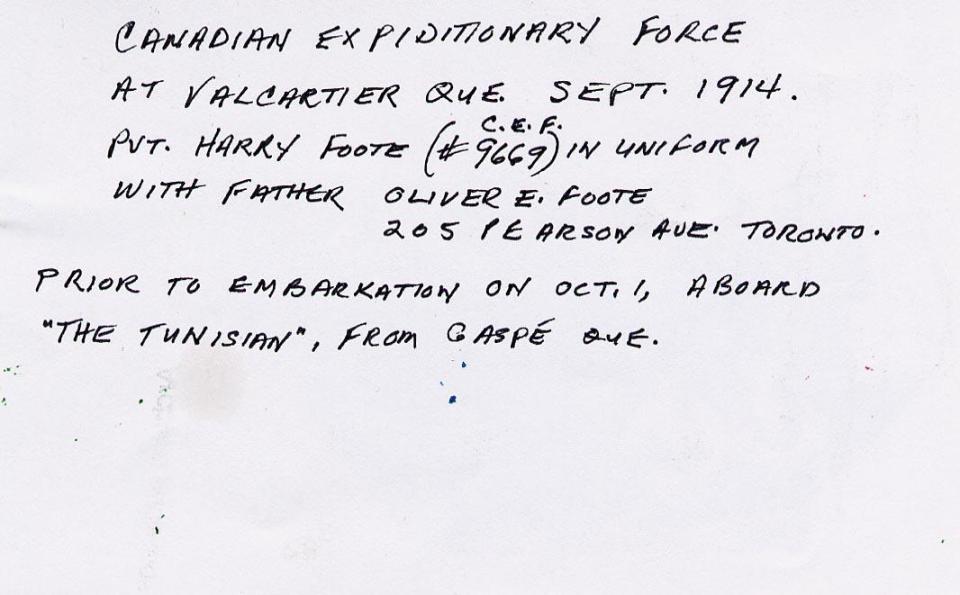 CANADIAN EXPIDITIONARY FORCE
AT VALCARTIER QUE. SEPT. 1914.
C.E.F.
PVT. HARRY FOOTE (#9669) IN UNIFORM
WITH FATHER OLIVER E. FOOTE
205 PEARSON AVE. TORONTO.
PRIOR TO EMBARKATION ON OCT. 1, ABOARD
"THE TUNISIAN", FROM GASPÉ QUE.